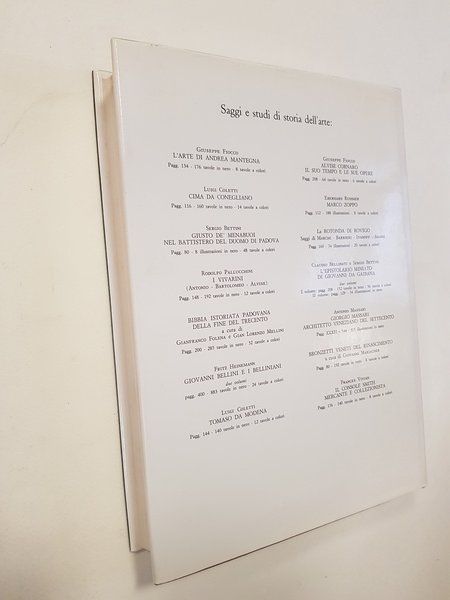 Saggi e studi di storia dell'arte:
Giuseppe Fiocco
L'ARTE DI ANDREA MANTEGNA
Pagg. 134 - 176 tavole in nero - 8 tavole a colori
Luigi Coletti
CIMA DA CONEGLIANO
Pagg. 116 - 160 tavole in nero - 14 tavole a colori
Sergio Bettini
GIUSTO DE' MENABUOI
NEL BATTISTERO DEL DUOMO DI PADOVA
Pagg. 80 - 8 illustrazioni in nero - 48 tavole a colori
Rodolfo Pallucchini
I VIVARINI
(Antonio - Bartolomeo - Alvise)
Pagg. 148 - 292 tavole in nero - 12 tavole a colori
BIBBIA ISTORIATA PADOVANA
DELLA FINE DEL TRECENTO
a cura di
Gianfranco Folena e Gian Lorenzo Mellini
Pagg. 200 - 285 tavole in nero - 32 tavole a colori
Fritz Heinemann
GIOVANNI BELLINI E I BELLINIANI
due volumi
pagg. 400 - 885 tavole in nero - 24 tavole a colori
Luigi Coletti
TOMASO DA MODENA
Pagg. 144 - 140 tavole in nero - 12 tavole a colori
Giuseppe Fiocco
ALVISE CORNARO
IL SUO TEMPO E LE SUE OPERE
Pagg. 208 - tavole in nero - tavole a colori
MARCO ZOPPO
Pagg. 112 - illustrazioni - tavole a colori
La ROTONDA DI ROVIGO
Saggi di
Pagg. 160 - 74 illustrazioni - 20 tavole a colori
Claudio Bellinati e Sergio Bettini
L'EPISTOLARIO MINIATO
DI GIOVANNI DA GAIBANA
due volumi
I volume: pagg.
II volume: pagg.
Antonio Massari
GIORGIO MASSARI
ARCHITETTO VENEZIANO DEL SETTECENTO
Pagg. illustrazioni in nero
BRONZETTI VENETI DEL RINASCIMENTO
a cura di Giovanni Mariacher
Pagg. 80 - tavole in nero - 8 tavole a colori
Frances Vivian
IL CONSOLE SMITH
MERCANTE E COLLEZIONISTA
Pagg. tavole in nero - tavole a colori